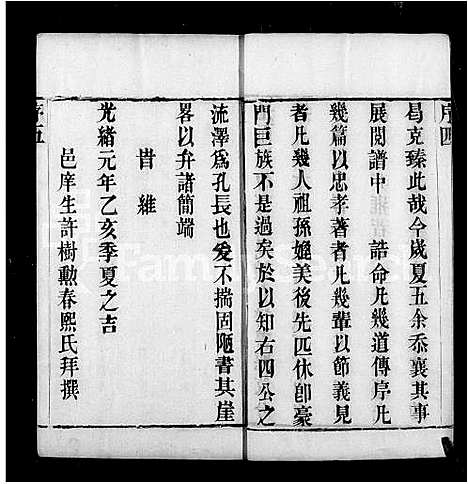 序四
曷克臻此哉今歲夏五余忝襄其事
展閱譜中 誥命凡幾道傳序凡
幾篇以忠孝著者凡幾輩以節義見
者凡幾人祖孫媲美後先匹休卽豪
門巨族不是過矣於以知右四公之
流澤爲孔長也爰不揣固陋書其崖
畧以弁諸簡端
時維
光緒元年乙亥季夏之吉
邑庠生許樹勲春熙氏拜撰
序五
FamilySearch